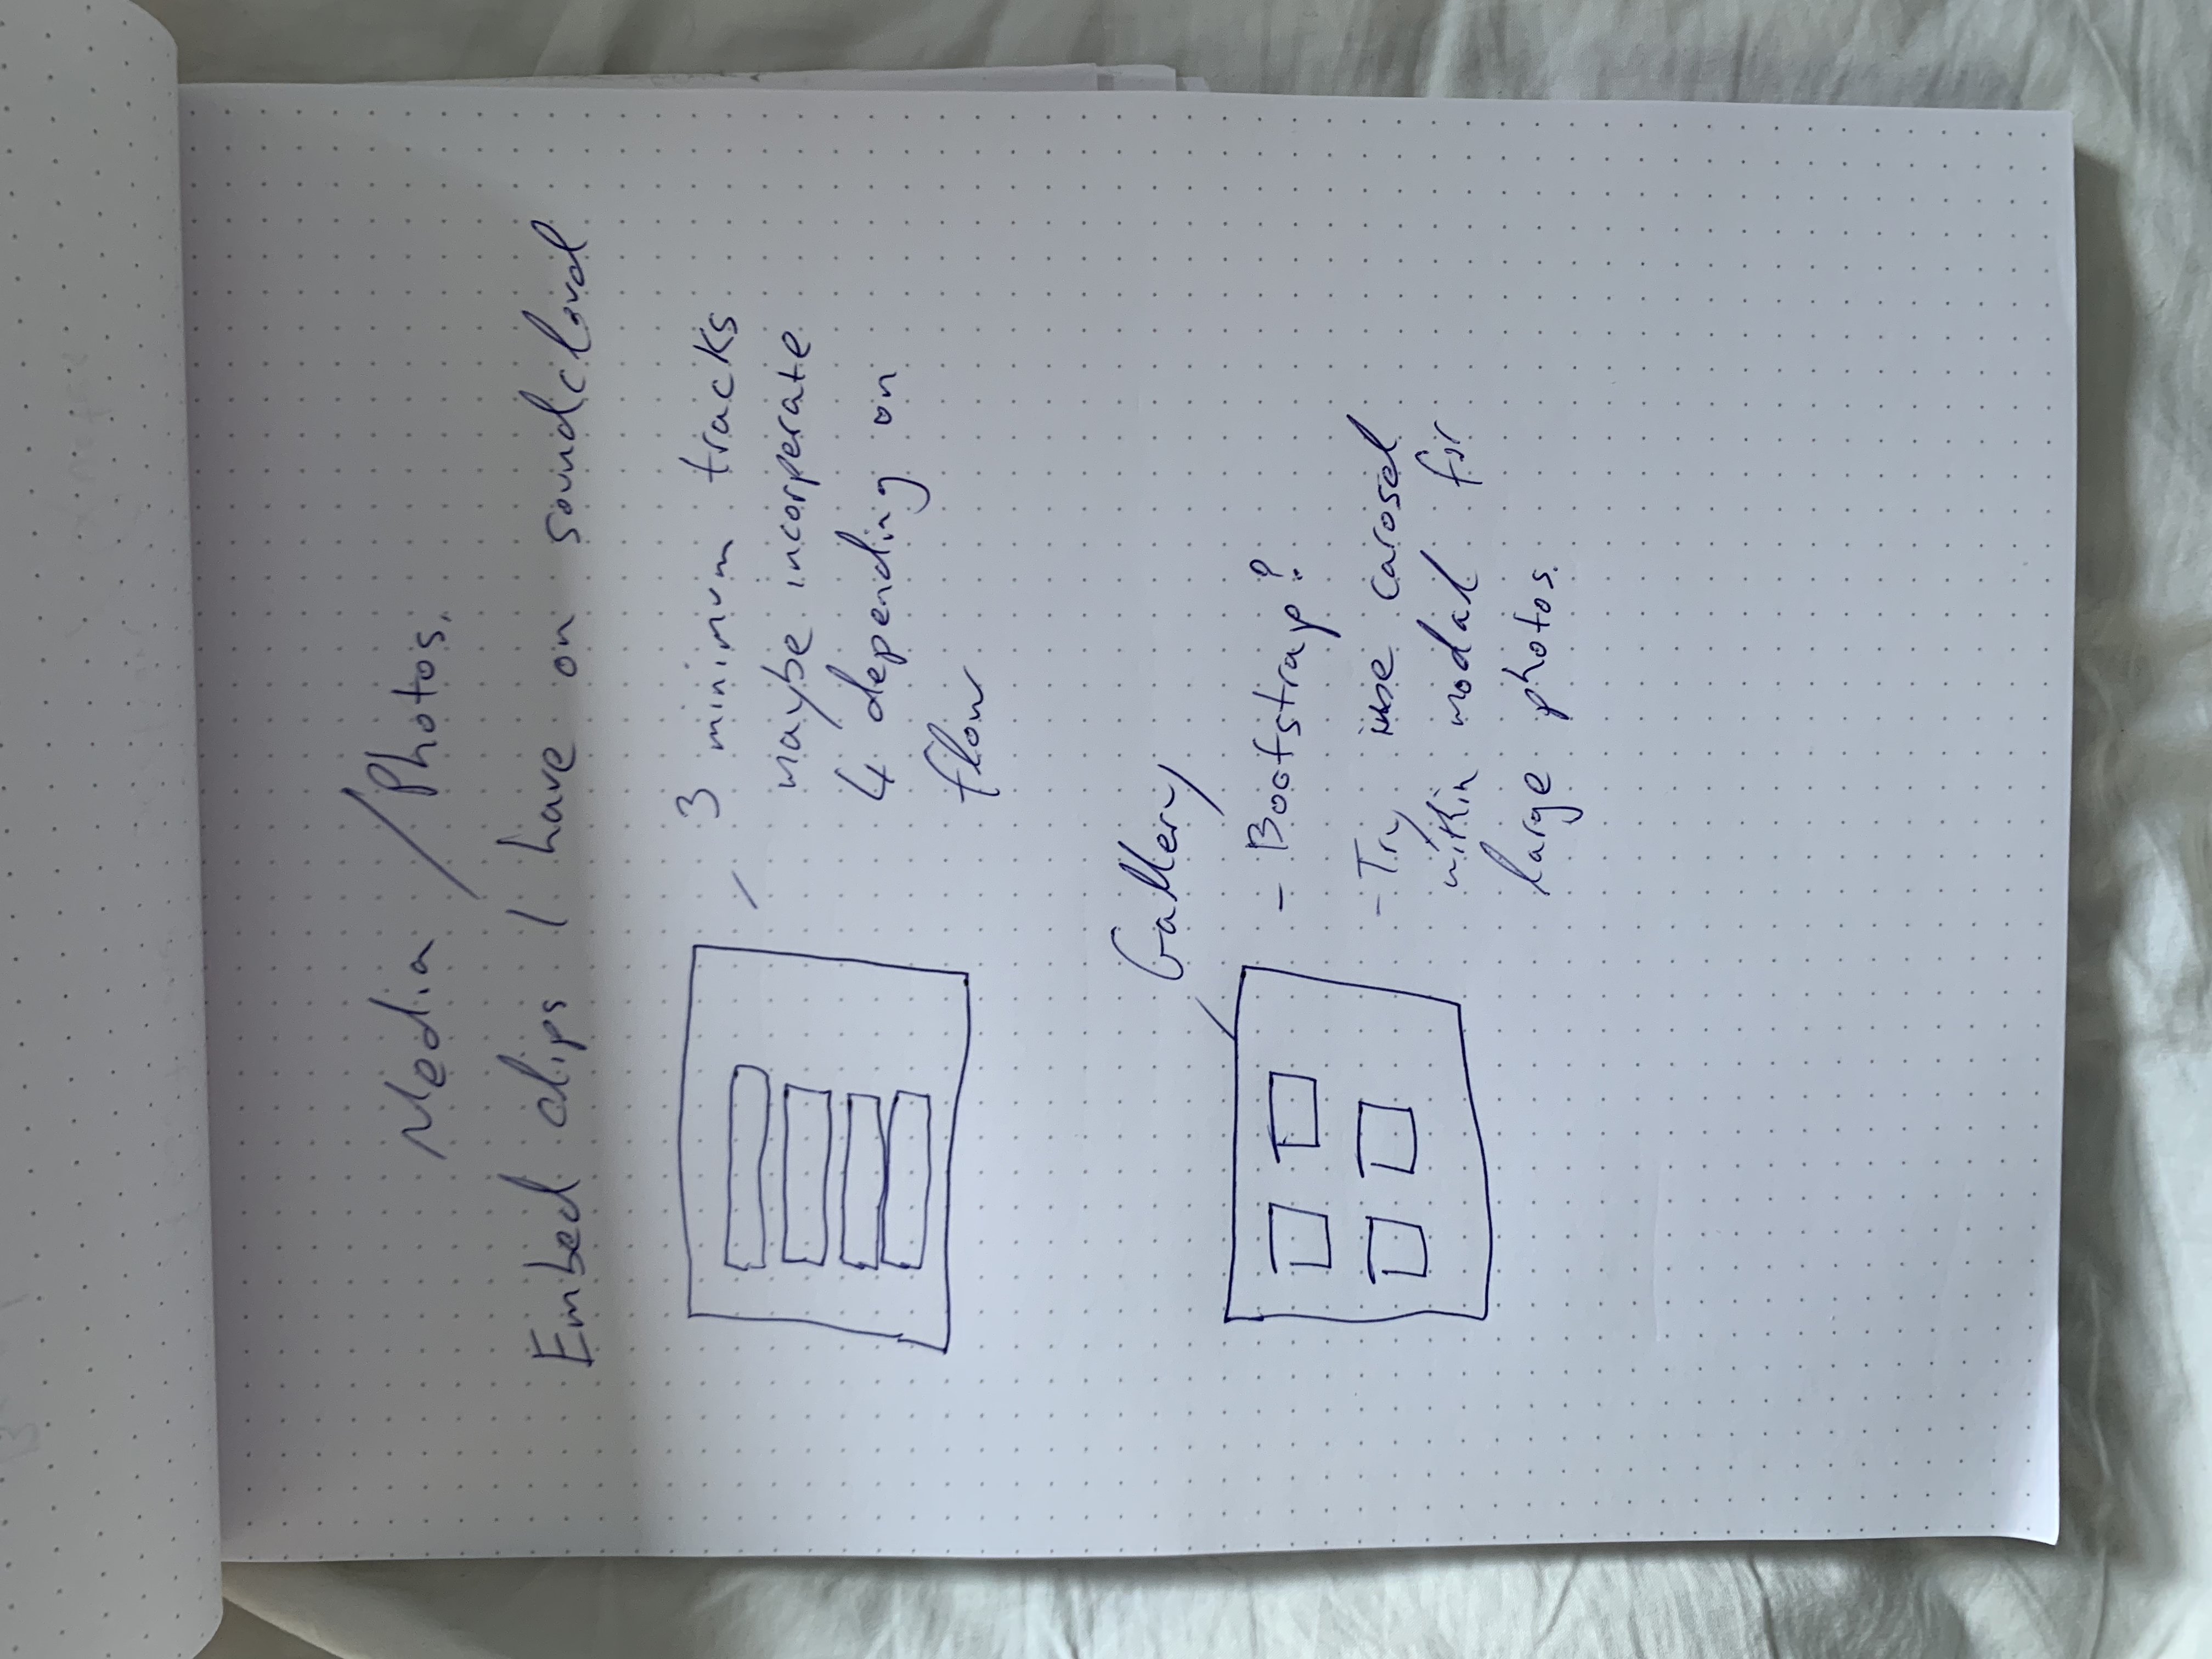 Media / Photos.
Embed clips I have on soundcloud
3 minimum tracks
maybe incorperate
4 depending on
flow
Gallery
- Bootstrap?
- Try use carosel
within modal for
large photos.